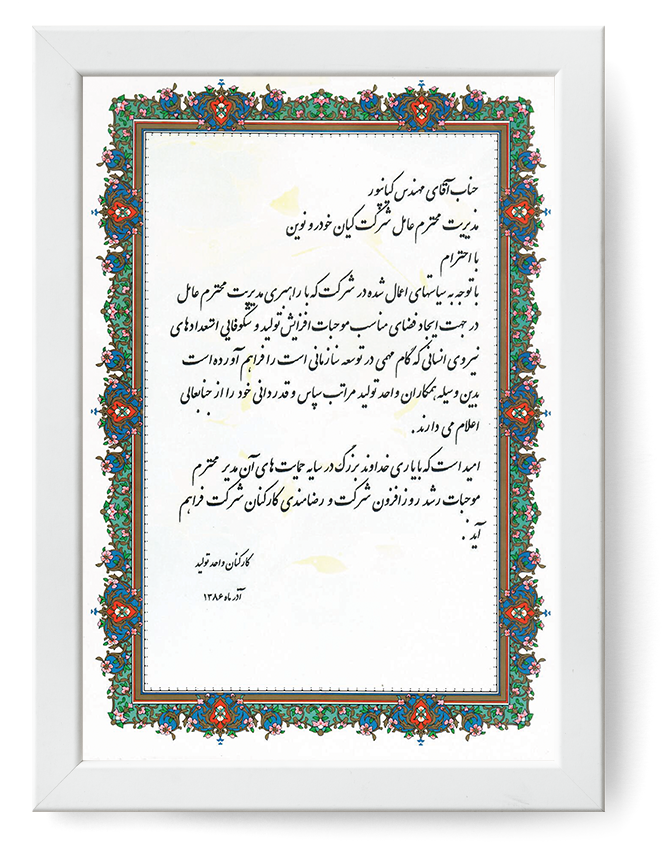 جناب آقای مهندس کیانپور
مدیریت محترم عامل شرکت کیان خودرو نوین
با احترام
با توجه به سیاستهای اعمال شده در شرکت که با راهبری مدیریت محترم عامل
در جهت ایجاد فضای مناسب موجبات افزایش تولید و شکوفایی استعدادهای
نیروی انسانی که گام مهمی در توسعه سازمانی است را فراهم آورده است
بدین وسیله همکاران واحد تولید مراتب سپاس و قدردانی خود را از جنابعالی
اعلام می دارند .
امید است که با یاری خداوند بزرگ در سایه حمایت های آن مدیر محترم
موجبات رشد روز افزون شرکت و رضامندی کارکنان شرکت فراهم
آید .
کارکنان واحد تولید
آذر ماه ۱۳۸۶